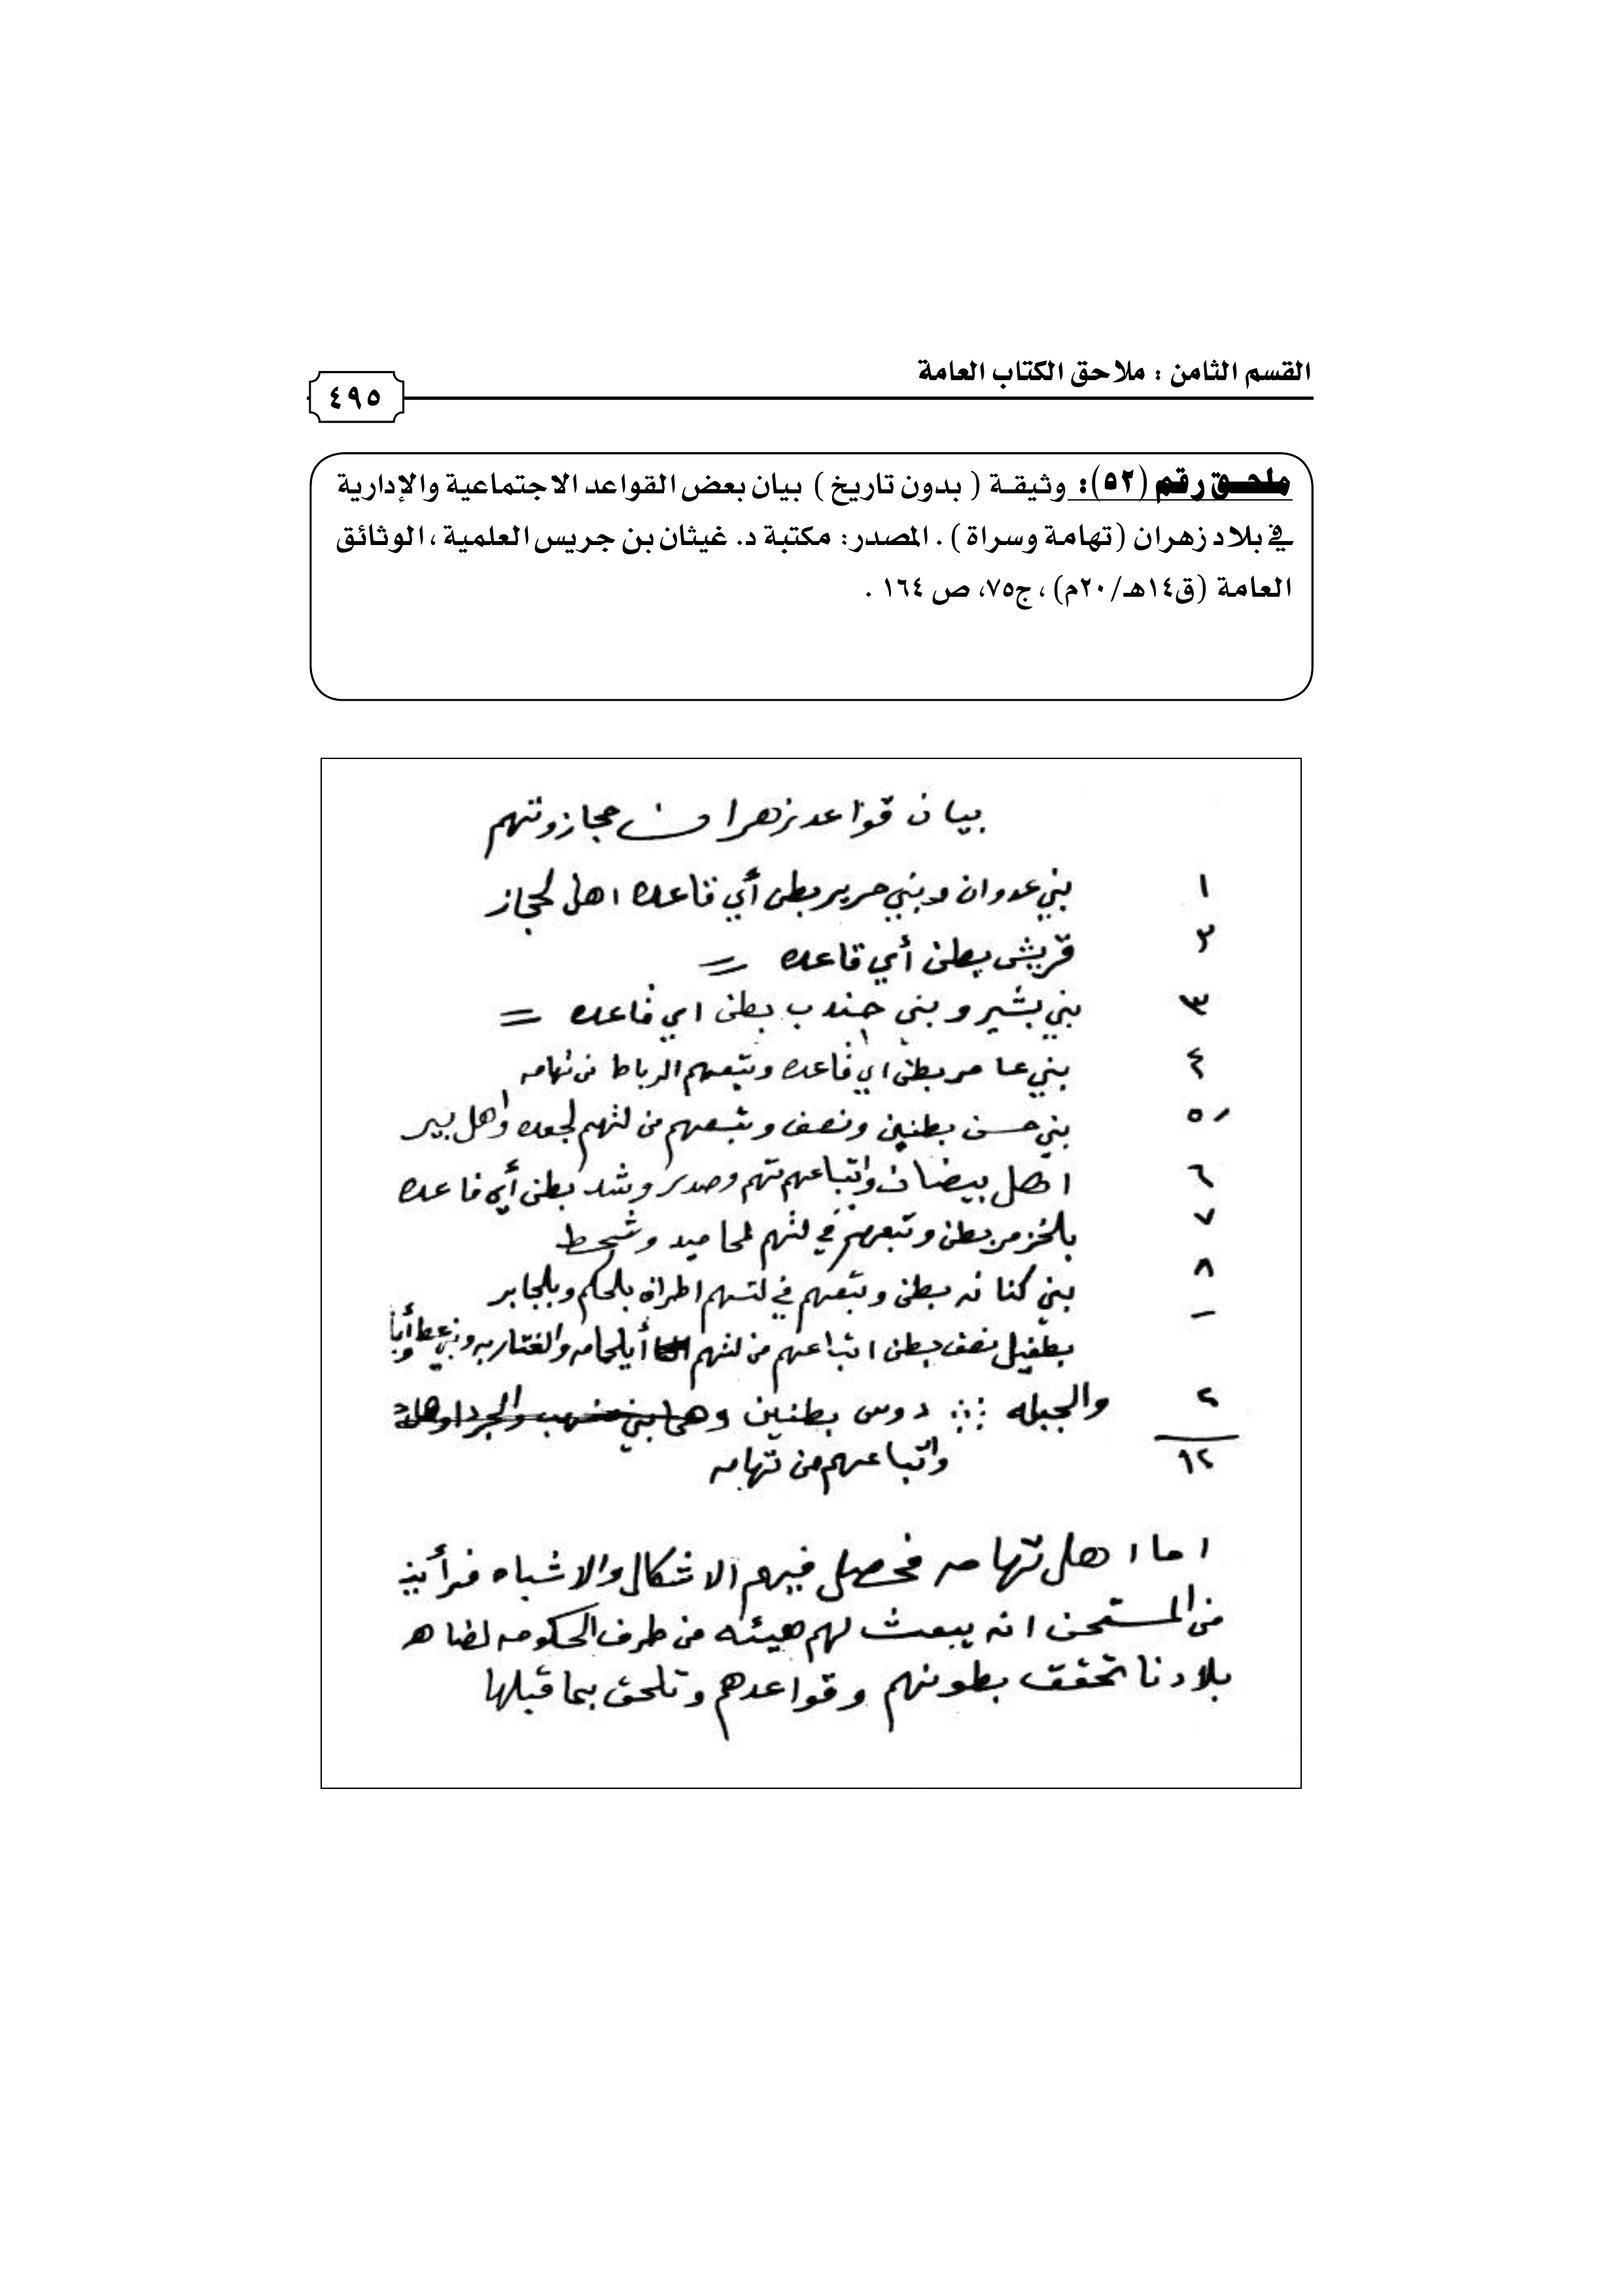 القسم الثامن : ملاحق الكتاب العامة
٤٩٥
ملحق رقم (٥٢): وثيقة ( بدون تاريخ ) بيان بعض القواعد الاجتماعية والإدارية
في بلاد زهران (تهامة وسراة ) . المصدر: مكتبة د. غيثان بن جريس العلمية ، الوثائق
العامة (ق١٤هـ/٢٠م) ، ج٧٥، ص ١٦٤ .
بيان قواعد زهران حجاز وتهم
١ بني عدوان وبني حرير بطن أي قاعده اهل لحجاز
٢ قريش بطن أي قاعده =
٣ بني بشير و بني جندب بطن اي قاعده =
٤ بني عامر بطن اي قاعده وتبعهم الرباط من تهامه
٥ بني حسن بطنين ونصف وتبعهم من لتهم لجعده واهل بير
٦ اهل بيضان واتباعهم تهم وصدر وشد بطن أي قاعده
٧ بلخزمر بطن وتبعهم في لتهم لمحاميد وشحط
٨ بني كنانه بطن وتبعهم في لتهم بلحكم وبلجابر
بطفيل نصف بطن اتباعهم من لتهم
٢ والجبله دوس بطنين
١٢ واتباعهم من تهامه
اما اهل تهامه فحصل فيهم الاشكال والاشباه فرأينا
من المستحسن انه يبعث لهم هيئه من طرف الحكومه
بلادنا تحقق بطونهم وقواعدهم وتلحق بما قبلها